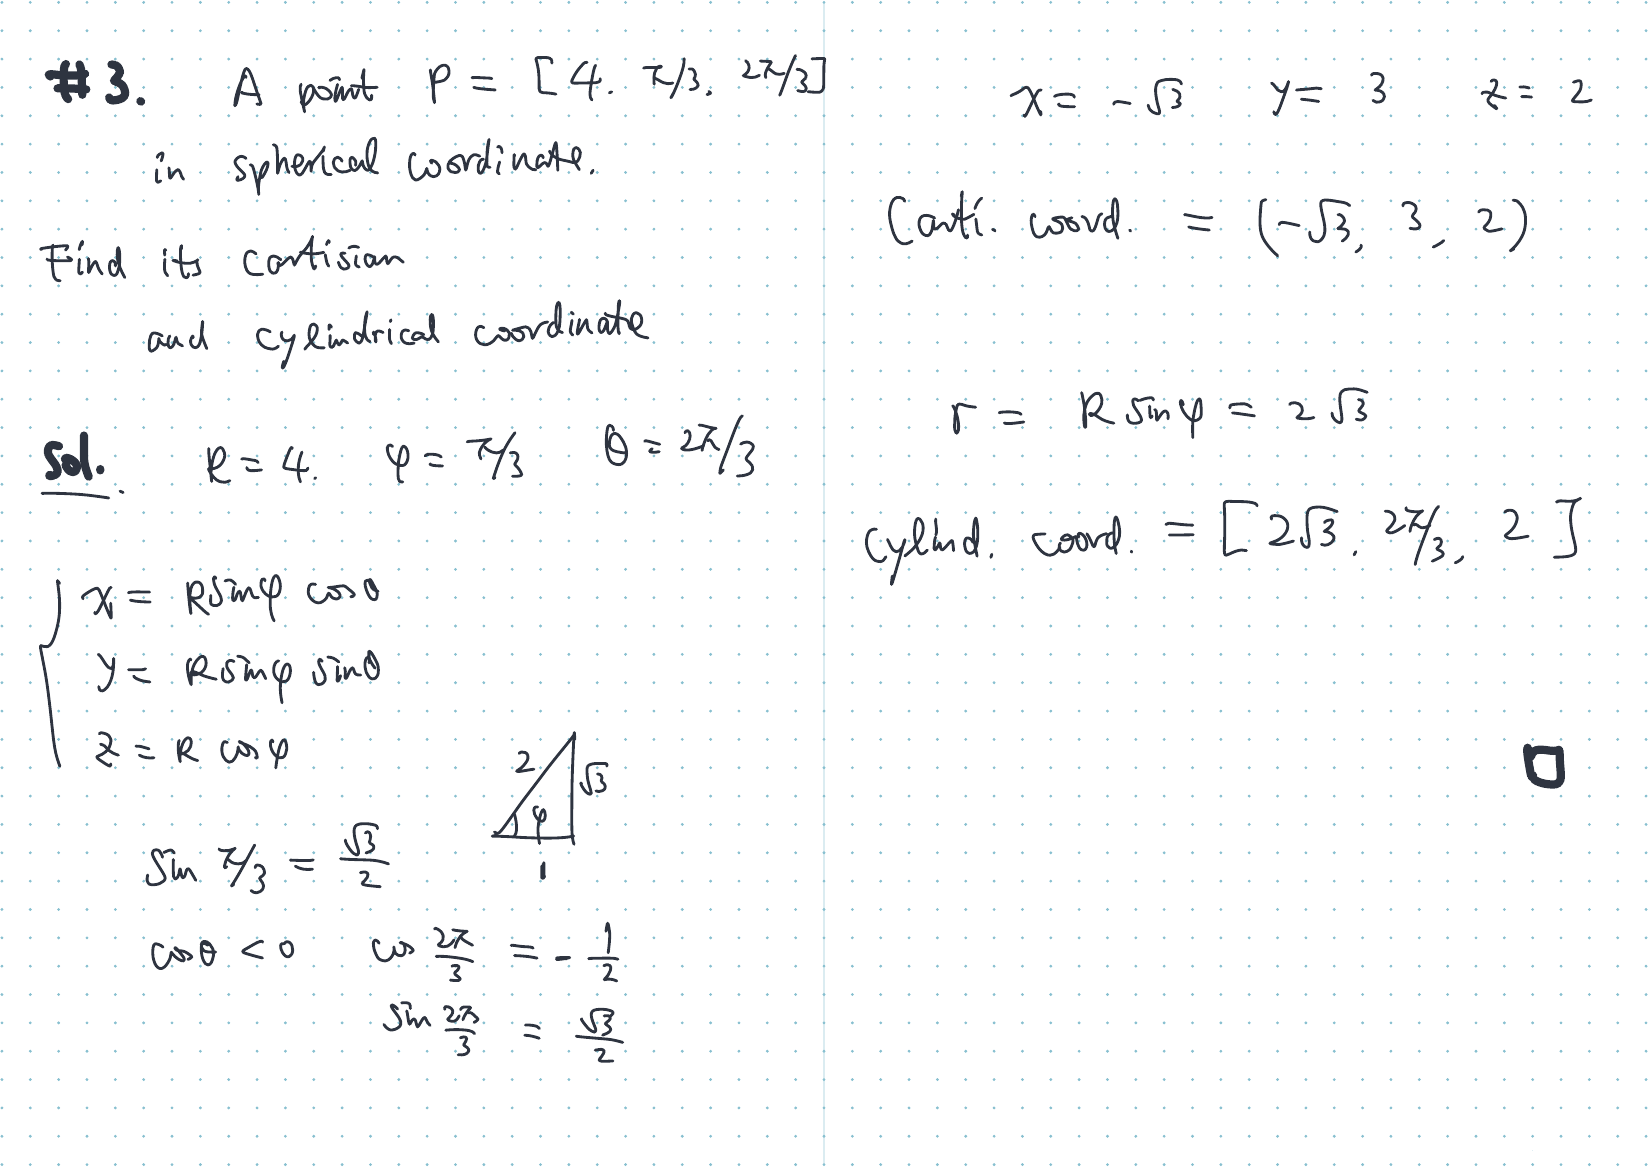 #3. A point P = [4. π/3, 2π/3]
in spherical coordinate.
Find its cartisian
and cylindrical coordinate
Sol. R = 4. φ = π/3 θ = 2π/3
x = R sinφ cosθ
y = R sinφ sinθ
z = R cosφ
2 √3 φ 1
sin π/3 = √3/2
cosθ < 0 cos 2π/3 = - 1/2
sin 2π/3 = √3/2
x = -√3 y = 3 z = 2
Carti. coord. = (-√3, 3, 2)
r = R sinφ = 2√3
Cylind. coord. = [2√3, 2π/3, 2]